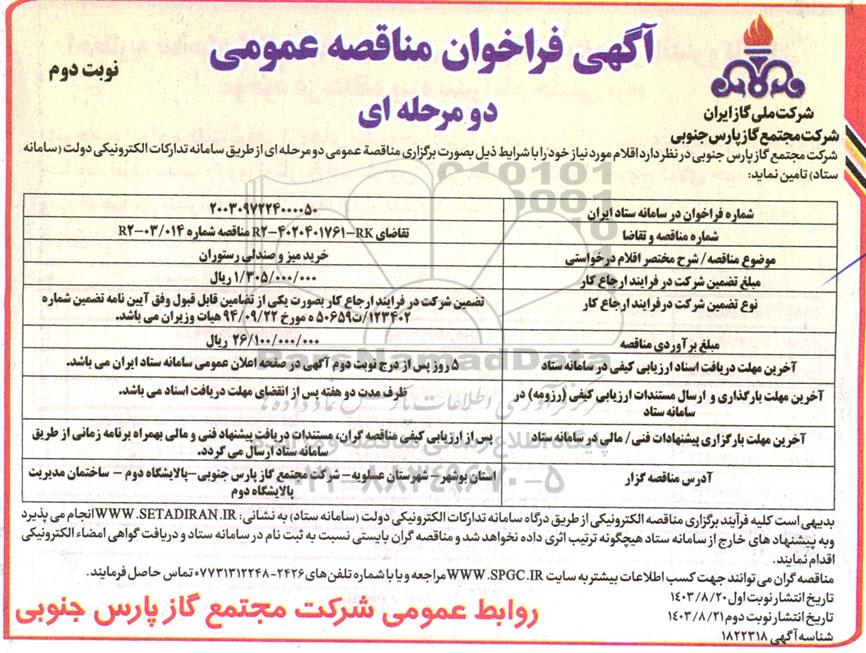 آگهی فراخوان مناقصه عمومی
دو مرحله ای
نوبت دوم
شرکت ملی گاز ایران
شرکت مجتمع گاز پارس جنوبی
شرکت مجتمع گاز پارس جنوبی در نظر دارد اقلام مورد نیاز خود را با شرایط ذیل بصورت برگزاری مناقصة عمومی دو مرحله ای از طریق سامانه تدارکات الکترونیکی دولت (سامانه
ستاد) تامین نماید:
شماره فراخوان در سامانه ستاد ایران ۲۰۰۳۰۹۷۲۲۴۰۰۰۰۵۰
شماره مناقصه و تقاضا تقاضای R۲-۴۰۲۰۴۰۱۷۶۱-RK مناقصه شماره R۲-۰۳/۰۱۴
موضوع مناقصه/ شرح مختصر اقلام درخواستی خرید میز و صندلی رستوران
مبلغ تضمین شرکت در فرایند ارجاع کار ۱/۳۰۵/۰۰۰/۰۰۰ ریال
نوع تضمین شرکت در فرایند ارجاع کار تضمین شرکت در فرایند ارجاع کار بصورت یکی از تضامین قابل قبول وفق آیین نامه تضمین شماره
۱۲۳۴۰۲/ت۵۰۶۵۹ ه مورخ ۹۴/۰۹/۲۲ هیات وزیران می باشد.
مبلغ برآوردی مناقصه ۲۶/۱۰۰/۰۰۰/۰۰۰ ریال
آخرین مهلت دریافت اسناد ارزیابی کیفی در سامانه ستاد ۵ روز پس از درج نوبت دوم آگهی در صفحه اعلان عمومی سامانه ستاد ایران می باشد.
آخرین مهلت بارگذاری و ارسال مستندات ارزیابی کیفی (رزومه) در ظرف مدت دو هفته پس از انقضای مهلت دریافت اسناد می باشد.
سامانه ستاد
آخرین مهلت بارگزاری پیشنهادات فنی/ مالی در سامانه ستاد پس از ارزیابی کیفی مناقصه گران، مستندات دریافت پیشنهاد فنی و مالی بهمراه برنامه زمانی از طریق
سامانه ستاد ارسال می گردد.
آدرس مناقصه گزار استان بوشهر- شهرستان عسلویه- شرکت مجتمع گاز پارس جنوبی-پالایشگاه دوم - ساختمان مدیریت
پالایشگاه دوم
بدیهی است کلیه فرآیند برگزاری مناقصه الکترونیکی از طریق درگاه سامانه تدارکات الکترونیکی دولت (سامانه ستاد) به نشانی: WWW.SETADIRAN.IR انجام می پذیرد
و به پیشنهاد های خارج از سامانه ستاد هیچگونه ترتیب اثری داده نخواهد شد و مناقصه گران بایستی نسبت به ثبت نام در سامانه ستاد و دریافت گواهی امضاء الکترونیکی
اقدام نمایند.
مناقصه گران می توانند جهت کسب اطلاعات بیشتر به سایت WWW.SPGC.IR مراجعه و یا با شماره تلفن های ۲۴۲۶-۰۷۷۳۱۳۱۲۲۴۸ تماس حاصل فرمایند.
تاریخ انتشار نوبت اول ۱۴۰۳/۸/۲۰
تاریخ انتشار نوبت دوم ۱۴۰۳/۸/۲۱
شناسه آگهی ۱۸۲۲۳۱۸
روابط عمومی شرکت مجتمع گاز پارس جنوبی
ParsNamadData
پایگاه اطلاع رسانی مناقصه و مزایده
۰۲۱-۸۸۳۴۹۶۷۰-۵